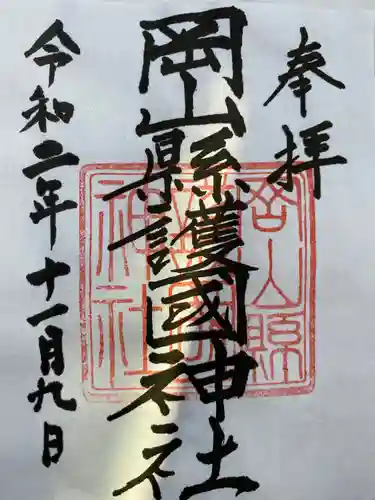 奉拝
岡山縣護國神社
令和二年十一月九日
岡山縣護國神社